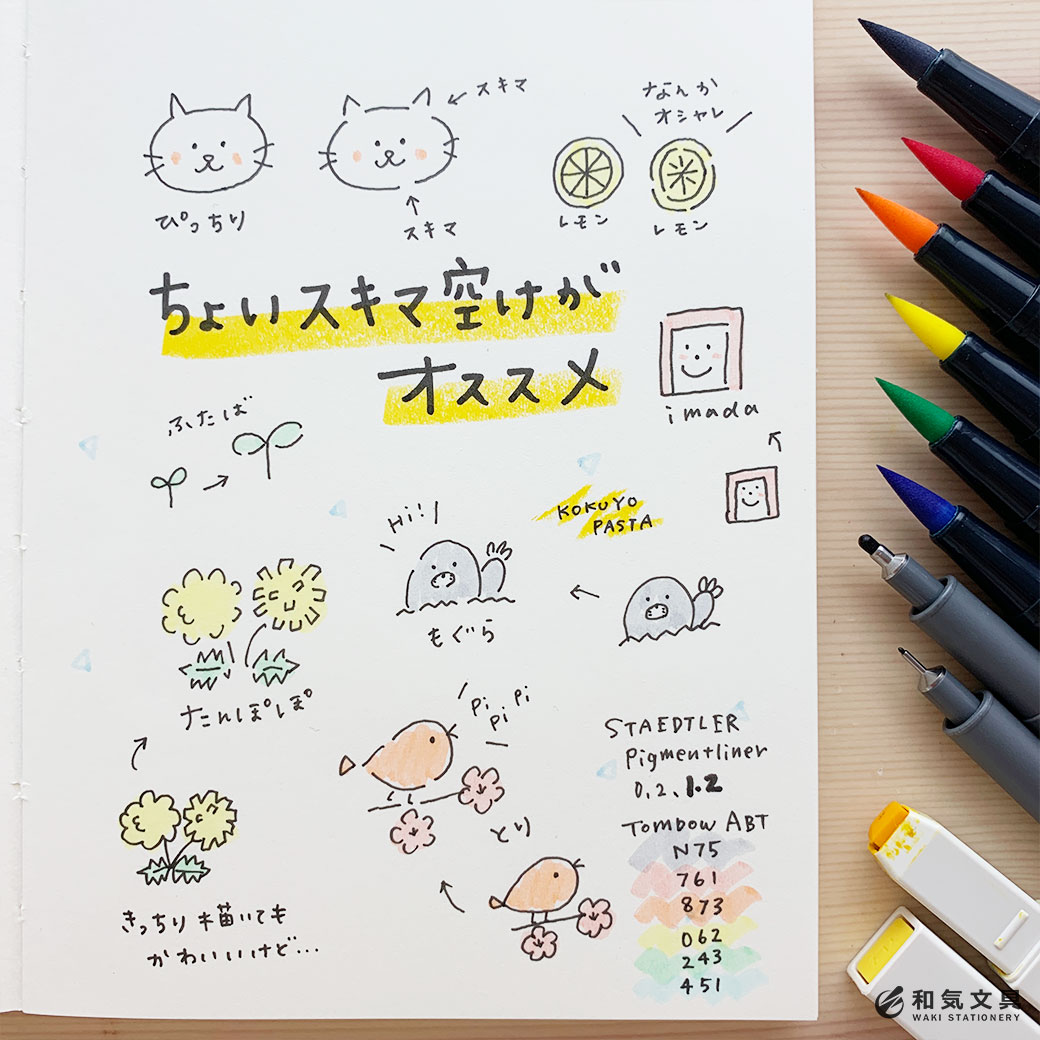 スキマ
ぴっちり
スキマ
なんか
オシャレ
レモン
レモン
ちょいスキマ空けが
オススメ
imada
ふたば
KOKUYO
PASTA
Hi!
もぐら
たんぽぽ
Pi Pi Pi
とり
きっちり描いても
かわいいけど…
STAEDTLER
Pigmentliner
0.2、1.2
TOMBOW ABT
N75
761
873
062
243
451
和気文具
WAKI STATIONERY